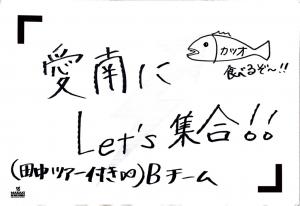 愛南に
カツオ
食べるぞ〜!!
Let's 集合!!
(田中ツアー付き∞)Bチーム